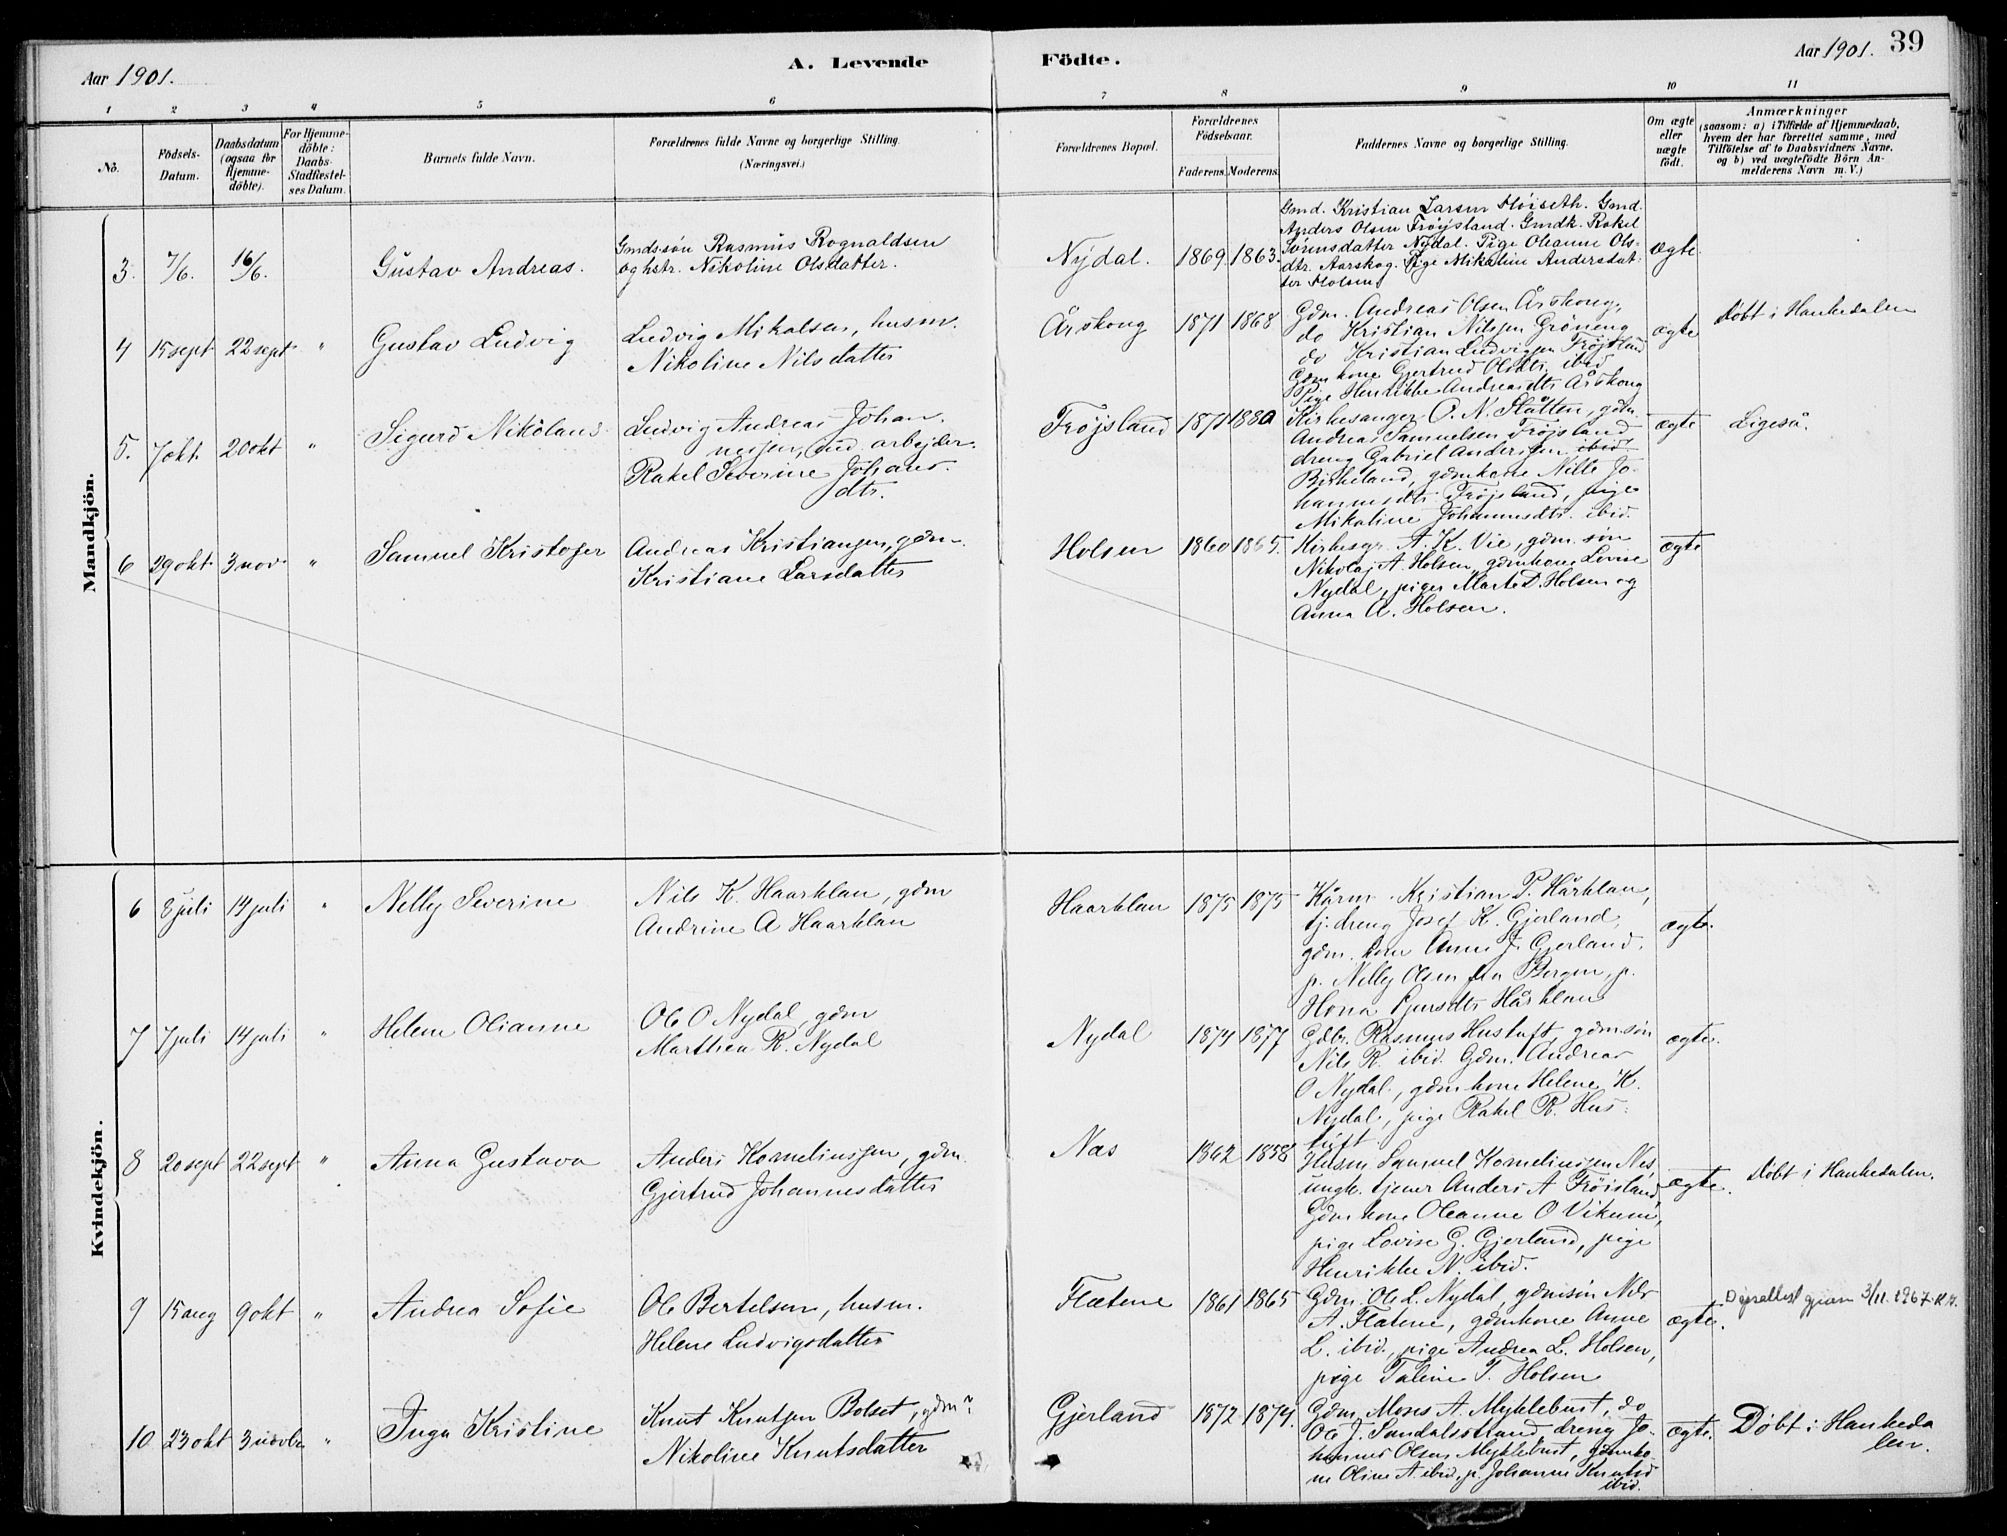 Aar 1901.
A. Levende
Födte.
Aar 1901.
39
1 2 3 4 5 6 7 8 9 10 11
No.
Födsels-
Datum.
Daabsdatum
(ogsaa for
Hjemme-
döbte).
For Hjemme-
döbte:
Daabs-
Stadfæstel-
ses Datum.
Barnets fulde Navn.
Forældrenes fulde Navne og borgerlige Stilling
(Næringsvei.)
Forældrenes Bopæl.
Forældrenes
Födselsaar.
Faderens. Moderens.
Faddernes Navne og borgerlige Stilling.
Om ægte
eller
uægte
födt.
Anmærkninger
(saasom: a) i Tilfælde af Hjemmedaab,
hvem der har forrettet samme, med
Tilföielse af to Daabsvidners Navne,
og b) ved uægtefödte Börn An-
melderens Navn m. V.)
Mandkjön.
3. 7/6. 16/6. Gustav Andreas.
Gmdssøn Rasmus Rognaldsen
og hstr. Nikoline Olsdatter.
Nÿdal. 1869. 1863.
Gmd. Kristian Larsen Fløiseth. Gmd.
Anders Olsen Frøysland. Gmdk. Rakel
Sørensdatter Nÿdal. Pige Oleanne Ols-
dtr. Aarskog. Pige Mikaline Andersdat-
ter Holsen.
ægte.
4 15 sept 22 sept " Gustav Ludvig
Ludvig Mikalsen, husm.
Nikoline Nilsdatter
Årskoug 1871 1868
Gdm. Andreas Olsen Årskoug,
do Kristian Nilssen Grøneng
do Kristian Ludvigsen Frøjsland
Gdmkone Gjertrud Olsdtr. ibid
Pige Henrikke Andreasdtr Årskoug
ægte
Døbt i Haukedalen
5. 7 okt. 20 okt " Sigurd Nikolaus
Ludvig Andreas Johan
nessen, ind. arbejder
Rakel Severine Johans-
dtr.
Frøjsland 1871 1880
Kirkesanger O. N. Slåtten, gdm.
Andreas Samuelsen Frøjsland,
dreng Gabriel Andersen ibid.
Birkeland, gdmkone Nille Jo-
hannesdtr Frøjsland, pige
Mikaline Johannesdtr. ibid.
ægte
Ligeså.
6 29 okt 3 nov. " Samuel Kristofer
Andreas Kristiansen, gdm.
Kristiane Larsdatter
Holsen 1860 1865.
Kirkesgr. A. K. Vie, gdm. søn
Nikolaj A. Holsen, gdmkone Lovise
Nydal, piger Marte D. Holsen og
Anna A. Holsen.
ægte
Kvindekjön.
6 8 juli 14 juli " Nelly Severine
Nils K. Haarklau, gdm
Andrine A Haarklau
Haarklau 1875 1875
Kårm. Kristian P. Hårklau,
tj. dreng Josef K. Gjerland,
gdm. kone Anne J. Gjerland,
p. Nelly Olsen fra Bergen, p.
Hårklau
ægte.
7 7 juli 14 juli " Helene Olianne
Ole O Nydal, gdm
Marthea R. Nydal
Nydal 1874 1877
Gdbr. Rasmus Hustuft, gdm. søn
Nils R. ibid. Gdm. Andreas
O Nydal, gdmkone Helene K.
Nydal, pige Rakel R. Hus-
tuft
ægte.
8 20 sept 22 sept " Anna Gustava
Anders Korneliussen, gdm.
Gjertrud Johannesdatter
Nes 1862 1858
Husm Samuel Korneliussen Nes,
ungk. tjener Anders A Frøisland,
Gdm kone Oleanne O Vikum,
pige Lovise G. Gjerland, pige
Henrikke N. ibid.
ægte.
Døbt i Haukedalen.
9 15 aug 9 okt " Andrea Sofie
Ole Bertelsen, husm.
Helene Ludvigsdatter
Flatene 1861 1865
Gdm. Ole L. Nydal, gdmsøn Nils
A. Flatene, gdmkone Anne
L. ibid., pige Andrea L. Holsen,
pige Taline T. Holsen
ægte.
3/11. 1967
10 23 okt 3 novbr " Inga Kristine
Knut Knutsen Bolset, gdm
Nikoline Knutsdatter
Gjerland 1872 1874.
Gdm. Mons A. Myklebust, do
Ole J. dreng Jo-
hannes Olsen Myklebust, gdmko-
ne Oline A. ibid, p. Johanne Knutsd
ibid.
ægte.
Døbt i Haukeda
len.